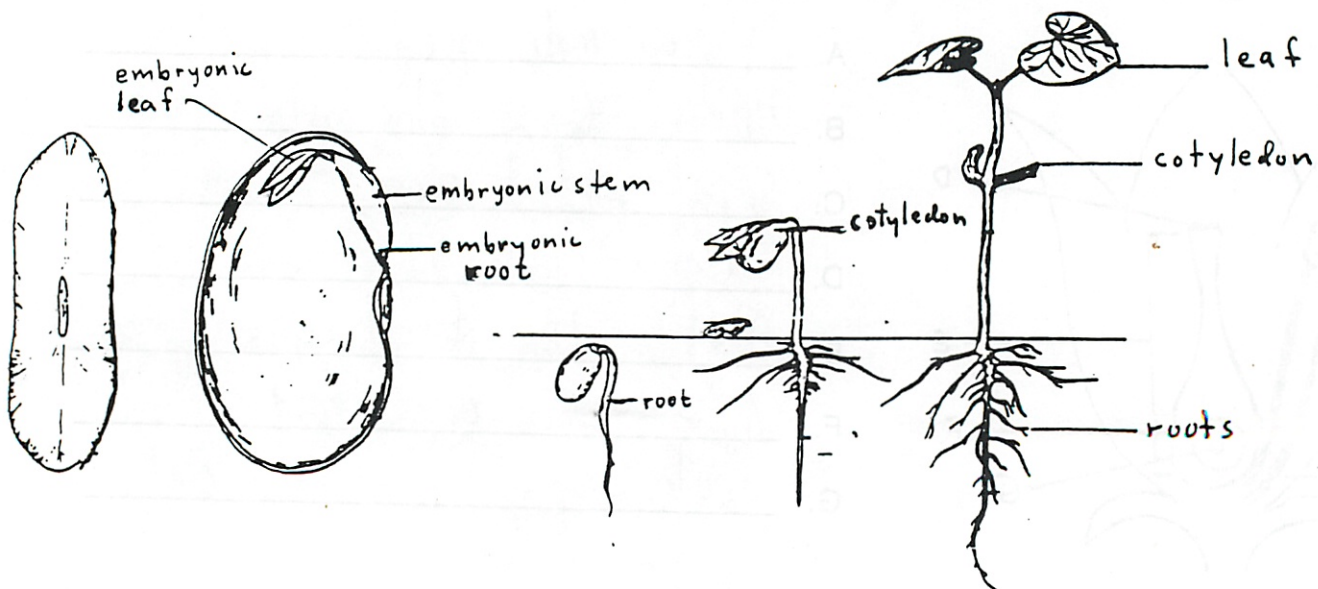 embryonic
leaf
embryonic stem
embryonic
root
cotyledon
root
leaf
cotyledon
roots
A
B
C.
D.
F
G
D